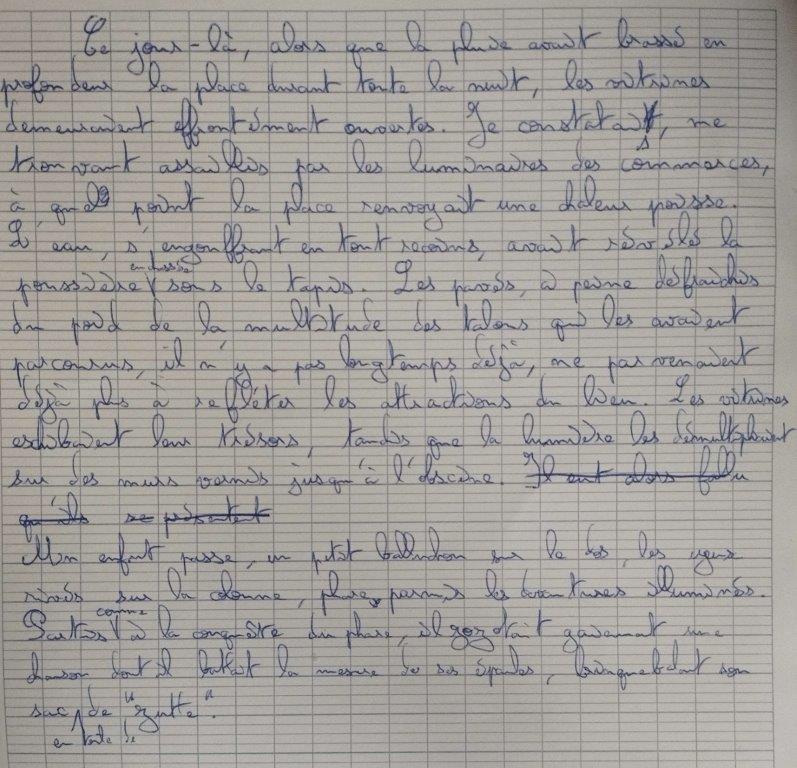 Ce jour-là, alors que la pluie avait brassé en
profondeur la place durant toute la nuit, les vitrines
demeuraient effrontément ouvertes. Je constatais, me
trouvant assaillis par les luminaires des commerces,
à quel point la place renvoyait une chaleur poisse.
L'eau, s'engouffrant en tout recoins, avait révélé la
poussière enchassée sous le tapis. Les pavés, à peine défraîchis
du poid de la multitude des talons qui les avaient
parcourus, il n'y a pas longtemps déjà, ne parvenaient
déjà plus à refléter les attractions du lieu. Les vitrines
exhibaient leurs trésors, tandis que la lumière les démultipliaient
sur des murs vernis jusqu'à l'obscène. Il eut alors fallu
qu'ils se présentent
Mon enfant passe, un petit balluchon sur le dos, les yeux
rivés sur la colonne, phare parmis les devantures illuminés.
Partis comme à la conquête du phare, il gazotait gaiement une
chanson dont il battait la mesure de ses épaules, brinquebalant son
sac de "zutte".
en toile de